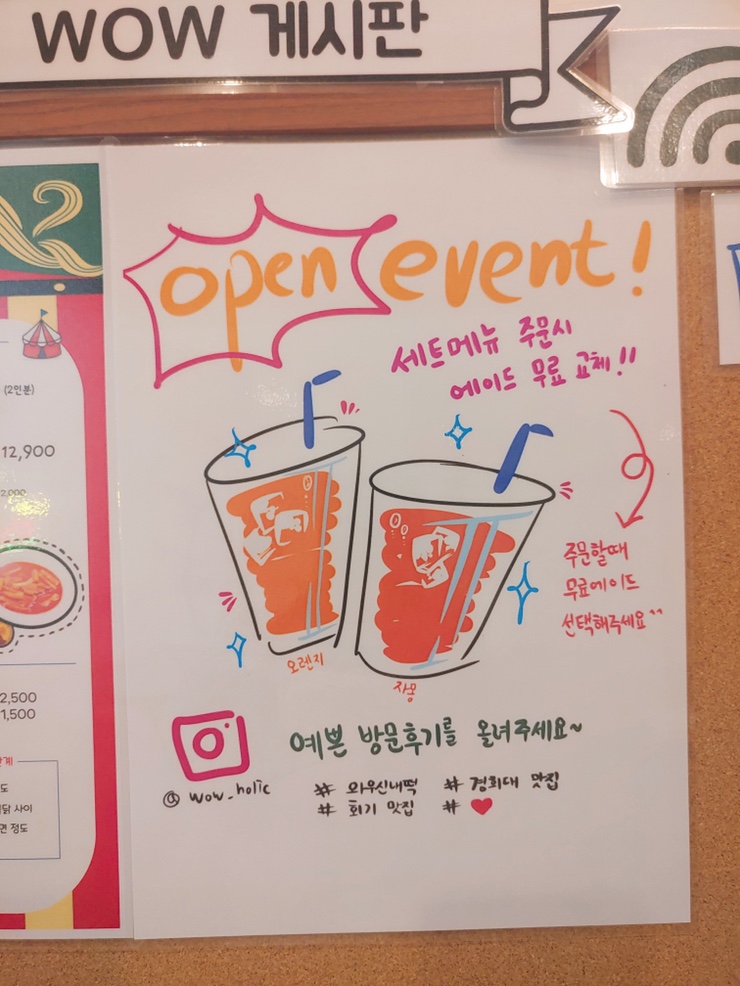 WOW 게시판
open event!
세트메뉴 주문시
에이드 무료 교체!!
주문할때
무료에이드
선택해주세요^^
오렌지
자몽
예쁜 방문후기를 올려주세요~
@wow_holic
# 와우신내떡 # 경희대 맛집
# 회기 맛집 # ♥
(2인분)
12,900
2,000
2,500
1,500
계
도
닭 사이
면 정도